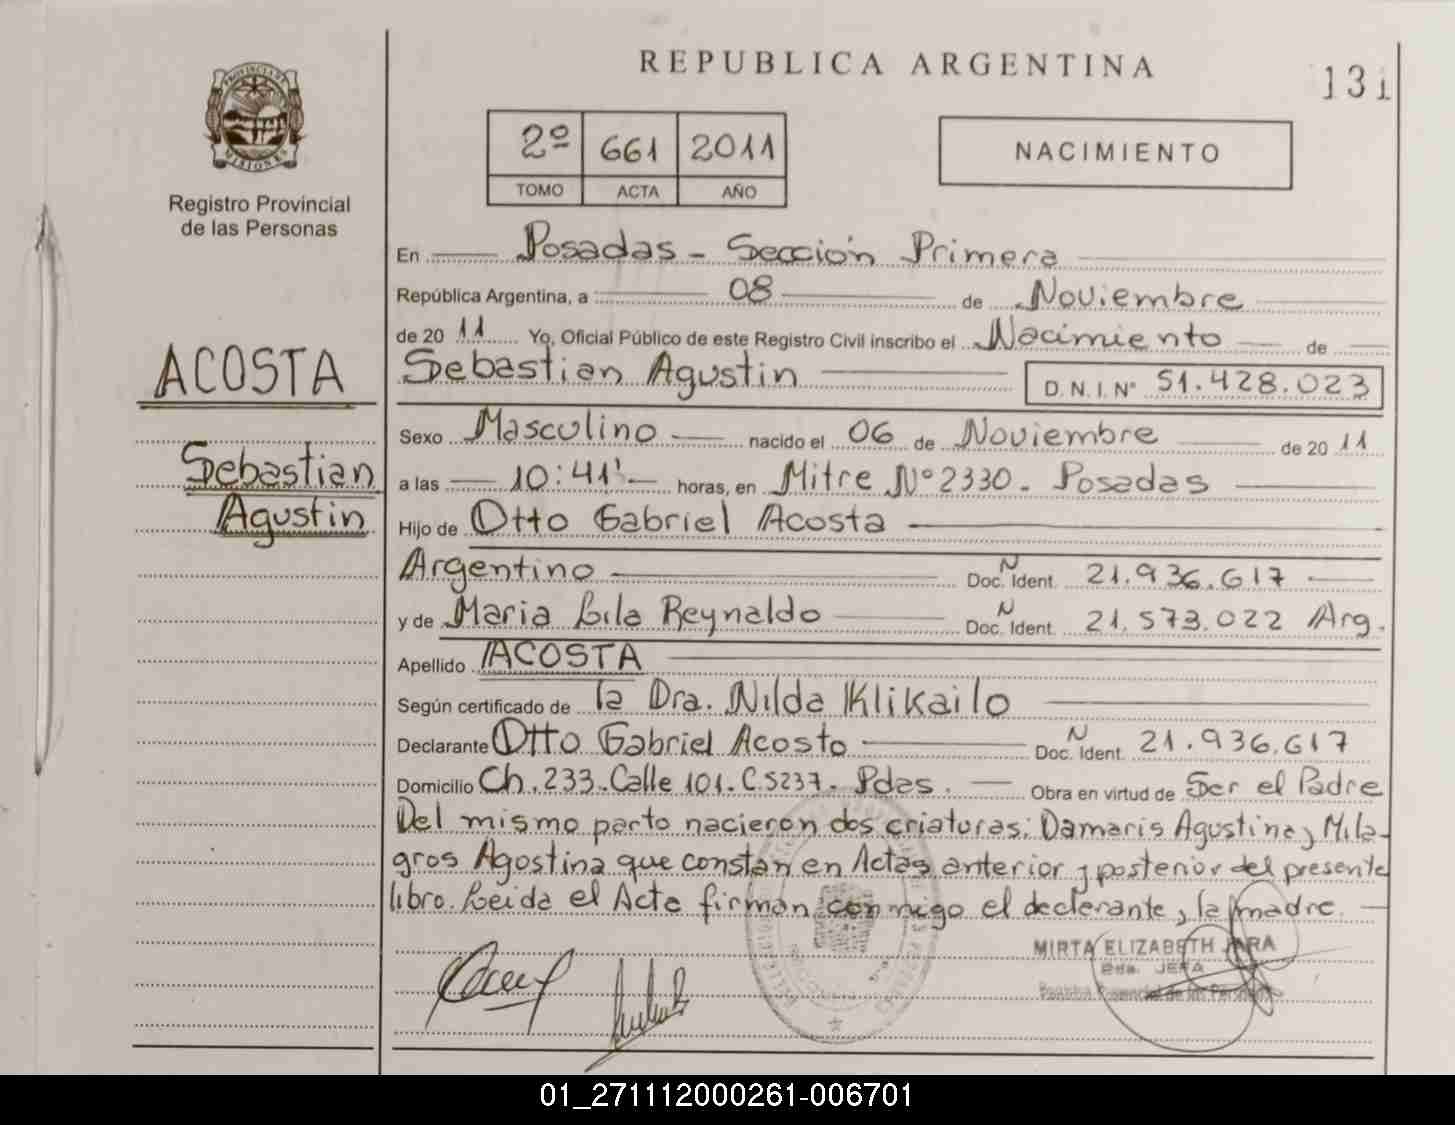 REPUBLICA ARGENTINA
131
PROVINCIA DE MISIONES
Registro Provincial
de las Personas
2º 661 2011
TOMO ACTA AÑO
NACIMIENTO
ACOSTA
Sebastian
Agustin
En Posadas - Sección Primera
República Argentina, a 08 de Noviembre
de 2011 Yo, Oficial Público de este Registro Civil inscribo el Nacimiento de
Sebastian Agustin D. N. I. Nº 51.428.023
Sexo Masculino nacido el 06 de Noviembre de 2011
a las 10:41' horas, en Mitre Nº 2330. Posadas
Hijo de Otto Gabriel Acosta
Argentino Doc. Ident. N 21.936.617
y de Maria Lila Reynaldo Doc. Ident. N 21.573.022 Arg.
Apellido ACOSTA
Según certificado de la Dra. Nilda Klikailo
Declarante Otto Gabriel Acosta Doc. Ident. N 21.936.617
Domicilio Ch. 233. Calle 101. C 5237. Pdas. Obra en virtud de Ser el Padre
Del mismo parto nacieron dos criaturas: Damaris Agustina y Mila-
gros Agostina que constan en Actas anterior y posterior del presente
libro. Leida el Acta firman conmigo el declarante y la madre.
MIRTA ELIZABETH JARA
2da. JEFA
Registro Provincial de las Personas
01_271112000261-006701